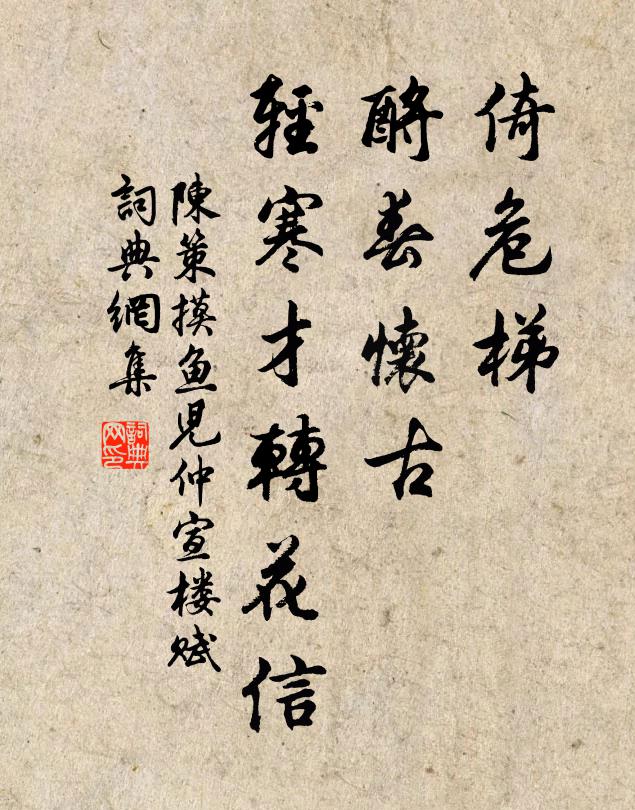 倚危梯
酹春懷古
輕寒才轉花信
陳策摸魚兒仲宣楼赋
詞典網集
詞典網印